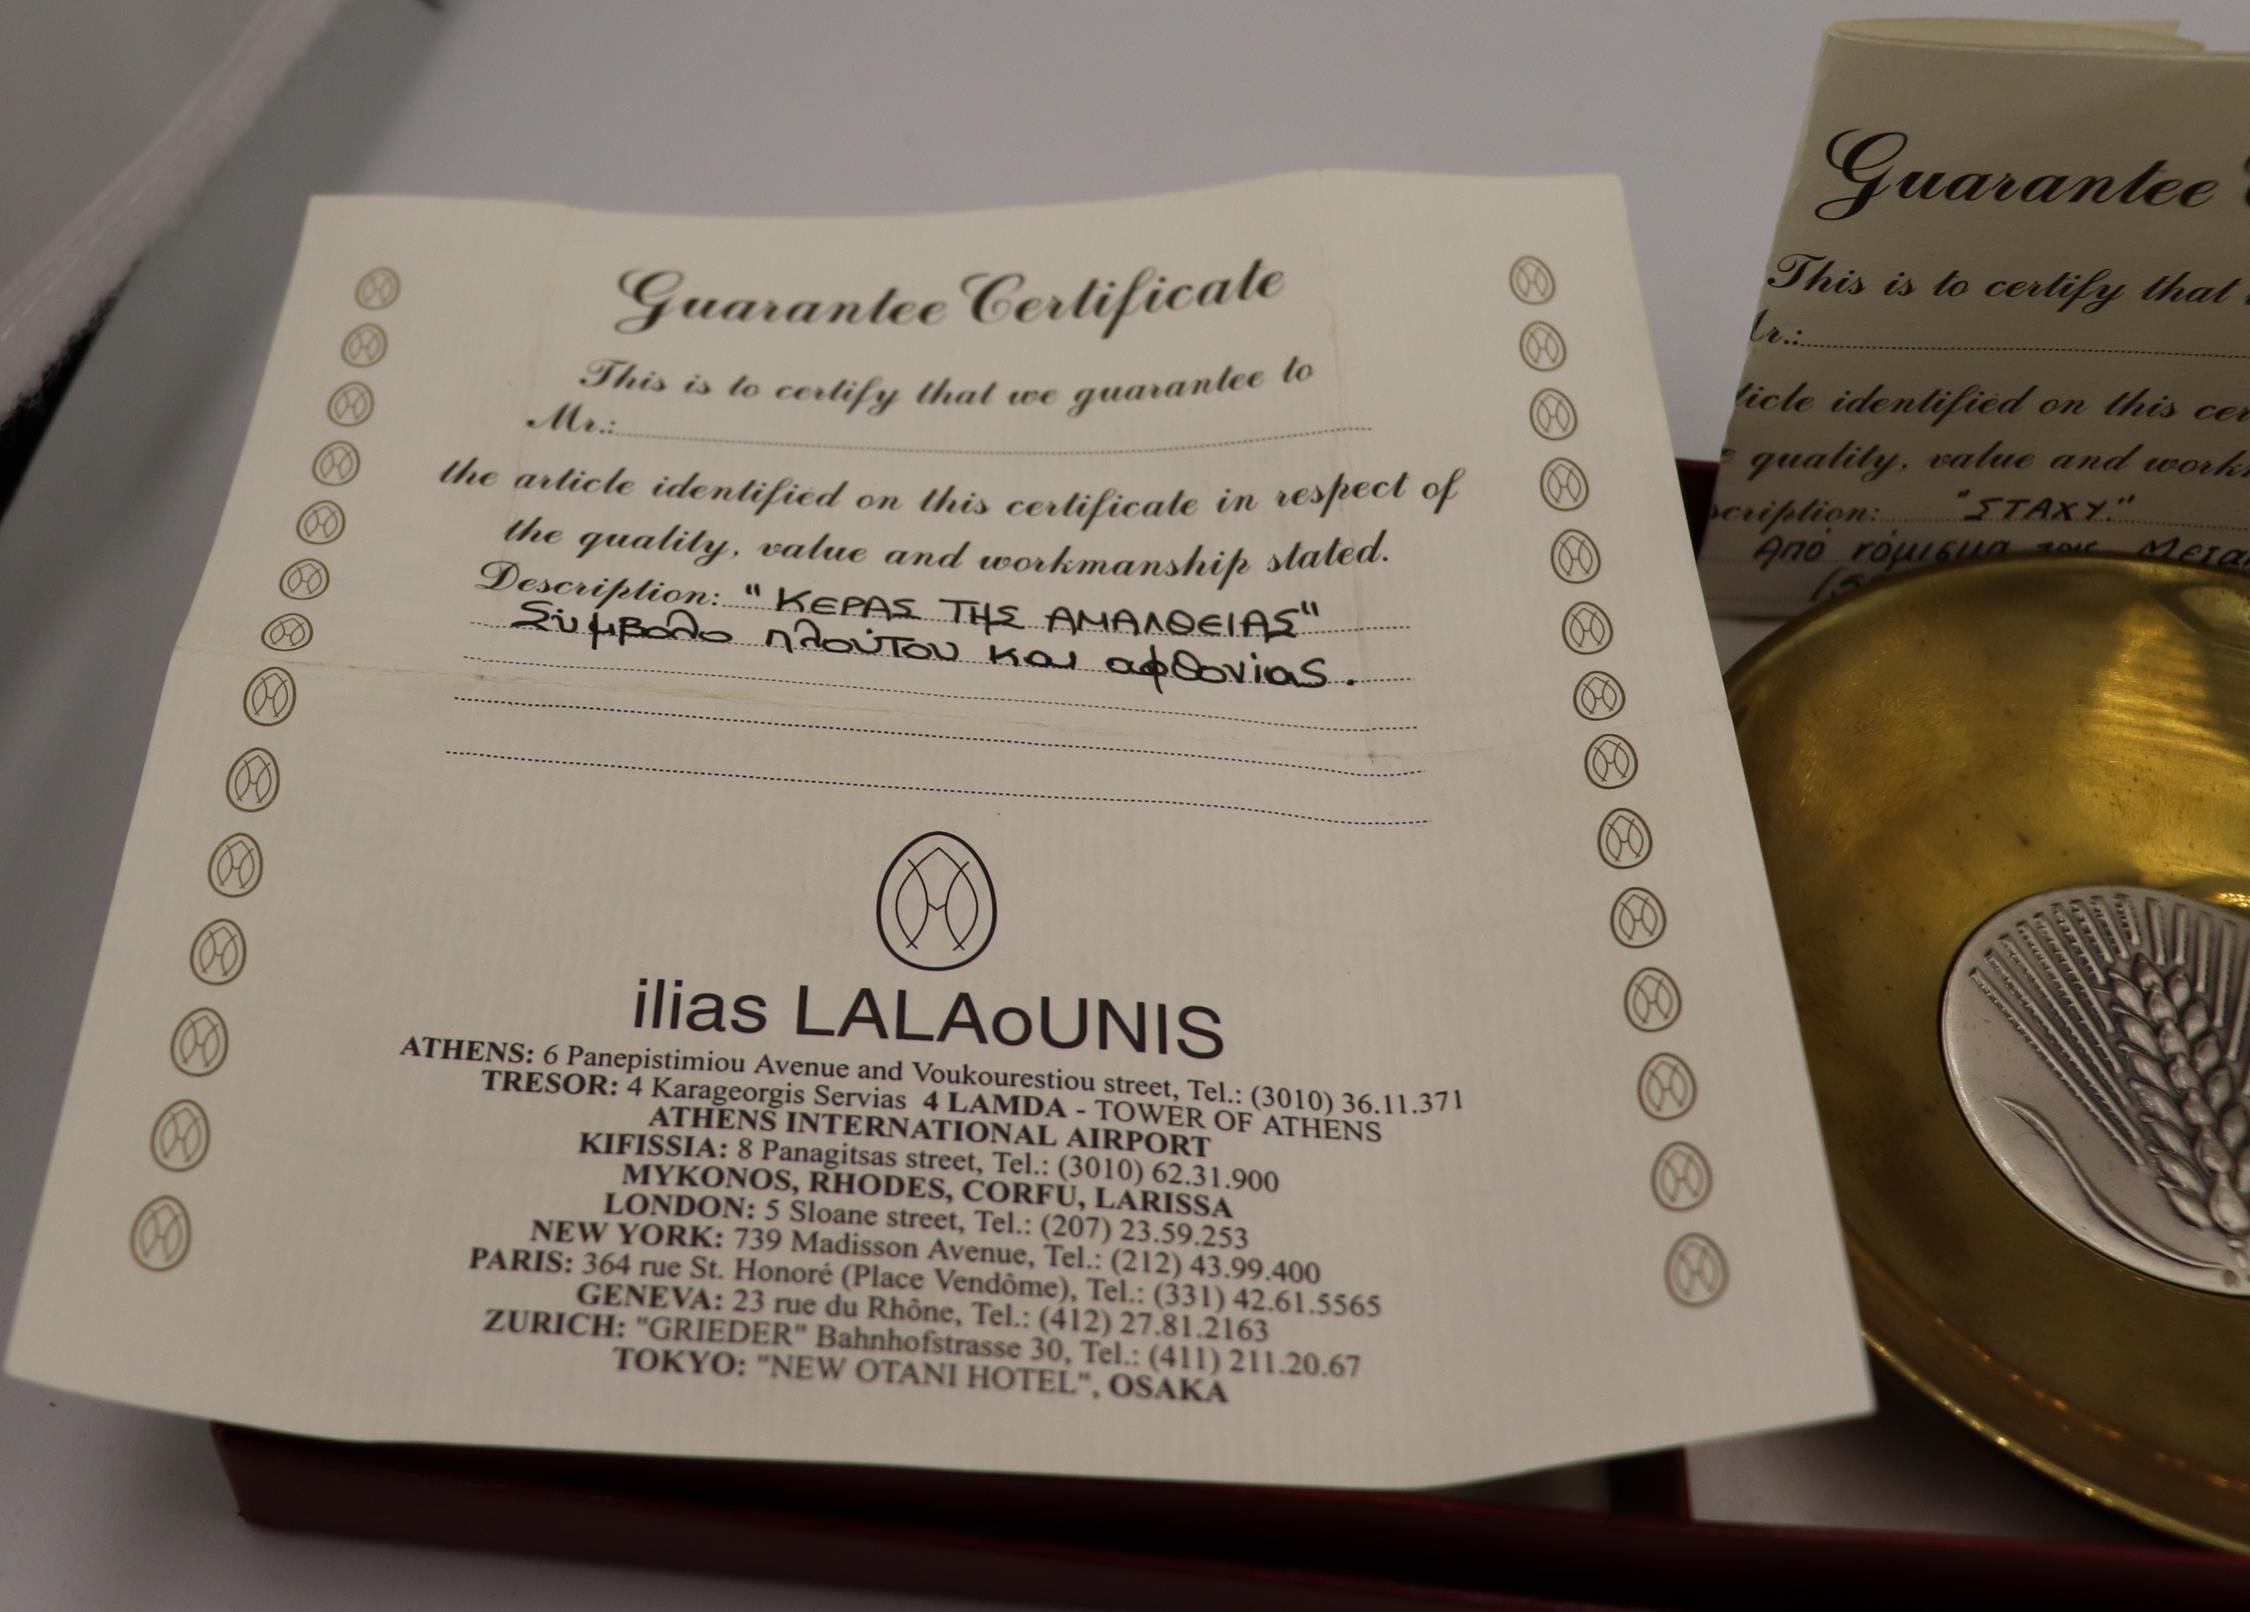 Guarantee Certificate
This is to certify that we guarantee to
Mr.:
the article identified on this certificate in respect of
the quality, value and workmanship stated.
Description: "ΚΕΡΑΣ ΤΗΣ ΑΜΑΛΘΕΙΑΣ"
Σύμβολο πλούτου και αφθονίας.
ilias LALAoUNIS
ATHENS: 6 Panepistimiou Avenue and Voukourestiou street, Tel.: (3010) 36.11.371
TRESOR: 4 Karageorgis Servias 4 LAMDA - TOWER OF ATHENS
ATHENS INTERNATIONAL AIRPORT
KIFISSIA: 8 Panagitsas street, Tel.: (3010) 62.31.900
MYKONOS, RHODES, CORFU, LARISSA
LONDON: 5 Sloane street, Tel.: (207) 23.59.253
NEW YORK: 739 Madisson Avenue, Tel.: (212) 43.99.400
PARIS: 364 rue St. Honoré (Place Vendôme), Tel.: (331) 42.61.5565
GENEVA: 23 rue du Rhône, Tel.: (412) 27.81.2163
ZURICH: "GRIEDER" Bahnhofstrasse 30, Tel.: (411) 211.20.67
TOKYO: "NEW OTANI HOTEL", OSAKA
Guarantee
This is to certify that
Mr.:
identified on this
quality, value and
"ΣΤΑΧΥ."
Από νόμισμα του